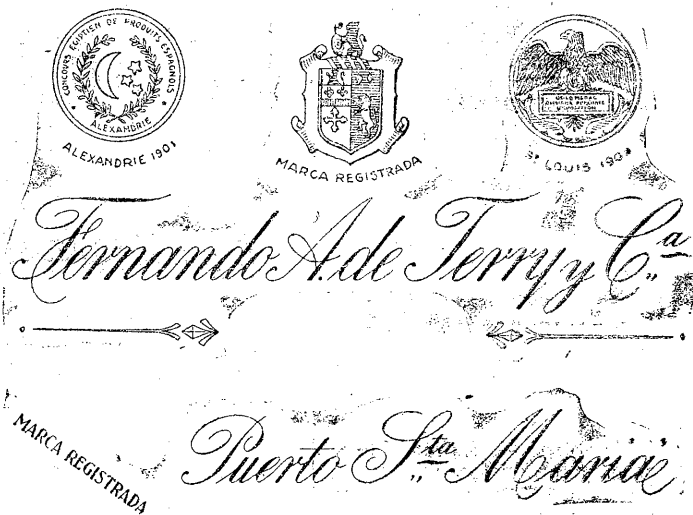 CONCOURS EGIPTIEN DE PRODUITS ESPAGNOLS
ALEXANDRIE
ALEXANDRIE 1901
MARCA REGISTRADA
St LOUIS
Fernando A. de Terry y C.ª
MARCA REGISTRADA
Puerto S.ta Maria